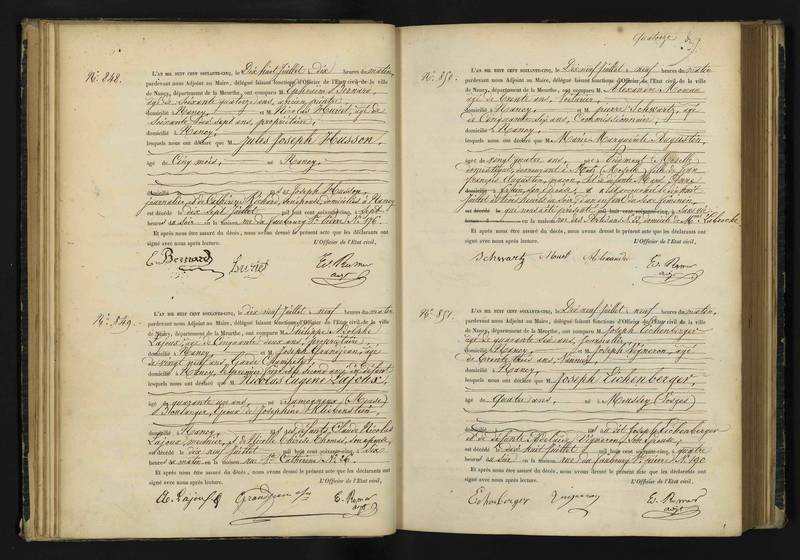 Nº 848.
L'AN MIL HUIT CENT SOIXANTE-CINQ, le Dix huit Juillet à dix heures du matin,
pardevant nous Adjoint au Maire, délégué faisant fonctions d'Officier de l'Etat civil de la ville
de Nancy, département de la Meurthe, ont comparu M. Ephraïm Bernard,
âgé de Soixante quatorze ans, ancien peintre,
domicilié à Nancy, et M. Nicolas Huriet, âgé de
Soixante sept ans, propriétaire,
domicilié à Nancy,
lesquels nous ont déclaré que M. Jules Joseph Husson,
âgé de Cinq mois, né à Nancy,
fils de Joseph Husson,
journalier, et de Catherine Richard, son épouse, domiciliés à Nancy
est décédé le dix sept Juillet mil huit cent soixante-cinq, à sept
heures du soir en la maison rue du faubourg St Pierre Nº 196.
Et après nous être assuré du décès, nous avons dressé le présent acte que les déclarants ont
signé avec nous après lecture. L'Officier de l'Etat civil,
E. Bernard Huriet
adjt
Nº 849.
L'AN MIL HUIT CENT SOIXANTE-CINQ, le dix neuf Juillet à neuf heures du matin,
pardevant nous Adjoint au Maire, délégué faisant fonctions d'Officier de l'Etat civil de la ville
de Nancy, département de la Meurthe, ont comparu M. Philippe Adolphe
Lajoux, âgé de Cinquante deux ans, propriétaire,
domicilié à Nancy, et M. Joseph Grandjean, âgé
de vingt neuf ans, Garde Champêtre,
domicilié à Nancy, le premier frère le second ami du défunt
lesquels nous ont déclaré que M. Nicolas Eugène Lajoux,
âgé de quarante un ans, né à Samogneux (Meuse)
Horloger, Epoux de Joséphine
domicilié à Nancy, fils des défunts Claude Nicolas
Lajoux, meunier, et de Nicolle Thérèse Thomas, son épouse,
est décédé le dix neuf Juillet mil huit cent soixante-cinq, à six
heures du matin en la maison rue Ste Catherine Nº 26.
Et après nous être assuré du décès, nous avons dressé le présent acte que les déclarants ont
signé avec nous après lecture. L'Officier de l'Etat civil,
A. Lajoux Grandjean
adjt
Nº 850.
L'AN MIL HUIT CENT SOIXANTE-CINQ, le Dix neuf Juillet à neuf heures du matin
pardevant nous Adjoint au Maire, délégué faisant fonctions d'Officier de l'Etat civil de la ville
de Nancy, département de la Meurthe, ont comparu M. Alexandre
âgé de trente ans, Voiturier,
domicilié à Nancy, et M. pierre Schwartz, âgé
de Cinquante six ans, Commissionnaire,
domicilié à Nancy,
lesquels nous ont déclaré que Marie Marguerite Augustin,
âgée de vingt quatre ans, née à (Moselle)
domestique, demeurant à Metz (Moselle), fille de Jean
françois Augustin, maçon, et de défunte Marie
son épouse, est accouchée le dix huit
Juillet à du soir, d'un enfant du sexe féminin,
qui nous a été présenté sans vie
en la maison rue
Et après nous être assuré du décès, nous avons dressé le présent acte que les déclarants ont
signé avec nous après lecture. L'Officier de l'Etat civil,
Schwartz Alexandre
adjt
Nº 851.
L'AN MIL HUIT CENT SOIXANTE-CINQ, le Dix neuf Juillet à neuf heures du matin,
pardevant nous Adjoint au Maire, délégué faisant fonctions d'Officier de l'Etat civil de la ville
de Nancy, département de la Meurthe, ont comparu M. Joseph Eichenberger
âgé de quarante six ans, Journalier,
domicilié à Nancy, et M. Joseph Vigneron, âgé
de trente trois ans, Vannier,
domicilié à Nancy,
lesquels nous ont déclaré que M. Joseph Eichenberger,
âgé de Quatre ans, né à Moussey (Vosges)
fils du dit Joseph Eichenberger
et de défunte Adélaïde Vigneron, son épouse,
est décédé le dix huit Juillet mil huit cent soixante-cinq, à quatre
heures du soir en la maison rue du faubourg St pierre Nº 190
Et après nous être assuré du décès, nous avons dressé le présent acte que les déclarants ont
signé avec nous après lecture. L'Officier de l'Etat civil,
Vigneron
adjt